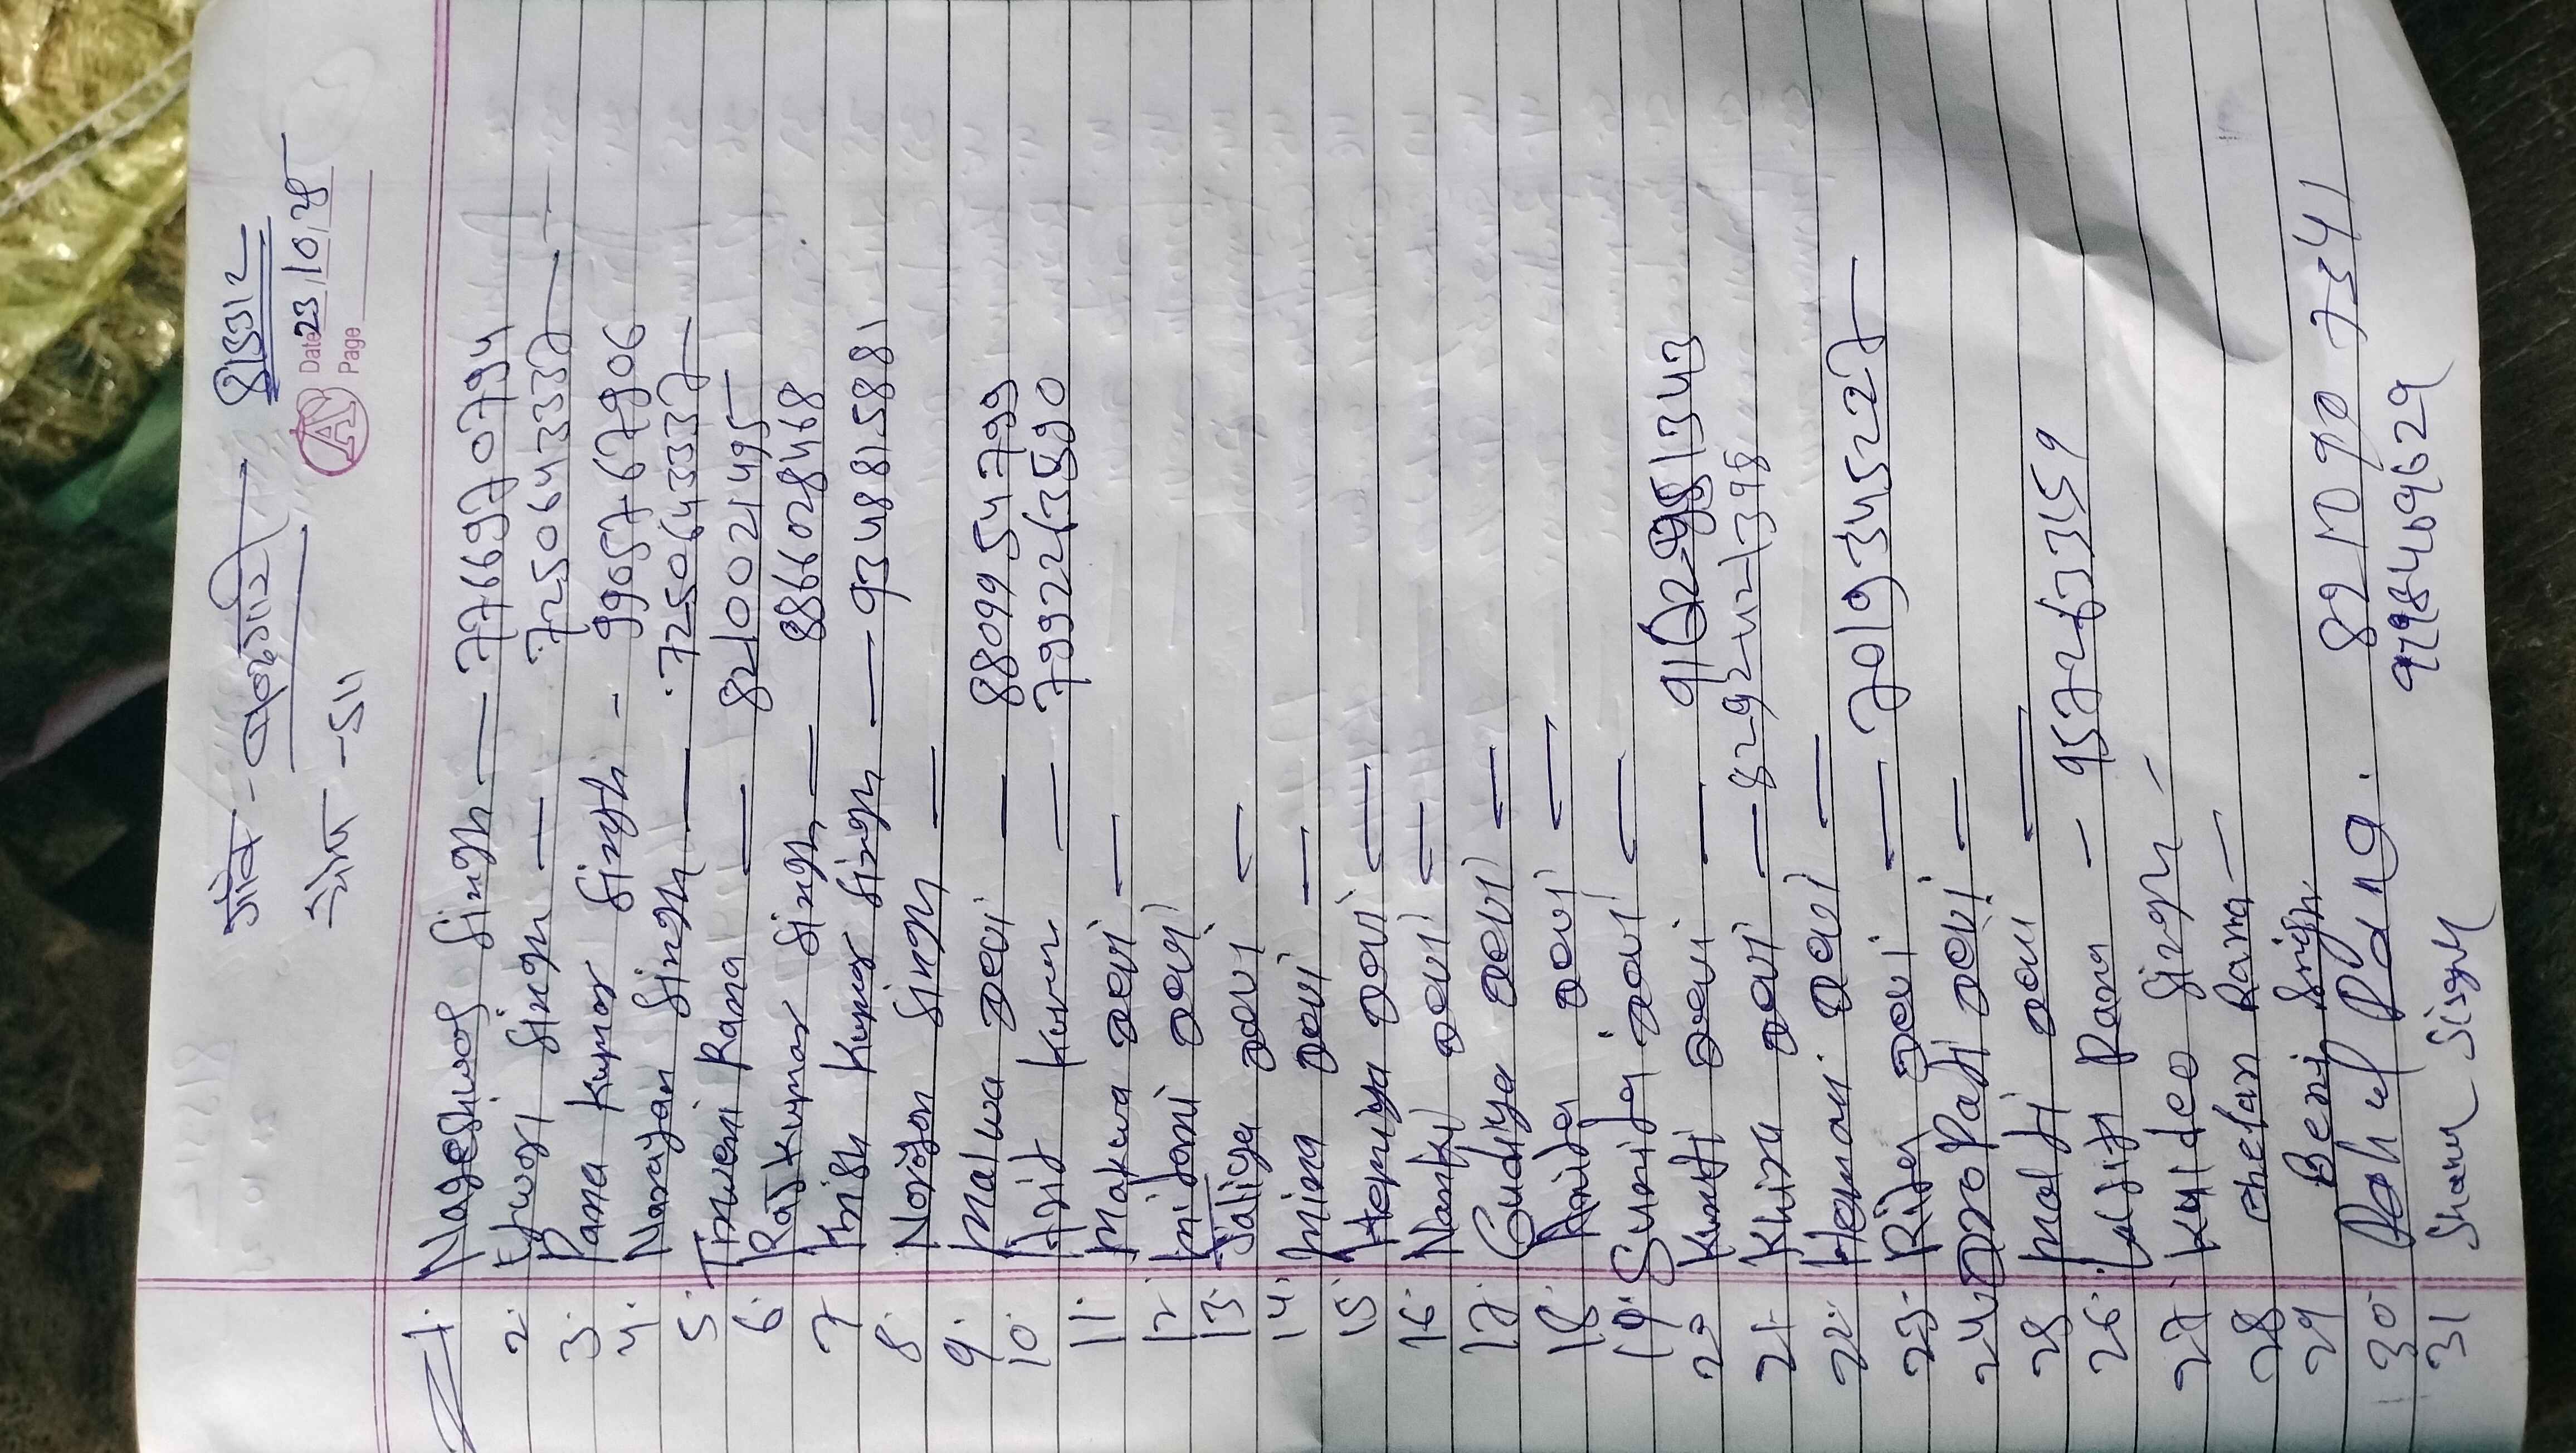 गाँव - बड़कीटांड़ 8/5312
Date 23/10/25
Page
गोप - 511
1. Nageshwor Singh — 7766970794
2. Eswori Singh — 7250643337
3. Rama Kumar Singh - 9905767906
4. Narayan Singh — 7250643337
5. Triweni Rana — 8210021495
6. Rajkumar Singh — 8866028468
7 Krish Kumar Singh — 9348815881
8. Norayan Singh —
9. Malwa Devi — 8809954799
10. Ajit Kumar — 7992243590
11. Makwa Devi —
12. Devi
13. Jaliya Devi —
14. Mina Devi —
15. Hemiya Devi —
16. Nanki Devi —
17. Gudiya Devi —
18. Anita Devi —
19. Sunita Devi —
20 Kunti Devi — 9102951343
21. Khira Devi — 8292421398
22. Hemani Devi —
23. Rita Devi — 7019345227
24. Dropati Devi —
25 Malti Devi —
26. Laljit Rana - 9572633159
27. Kuldeo Singh -
28 Chetan Rana —
29 Beni Singh
30. Rahul Rana. 8210907341
31 Sham Singh 9798409629